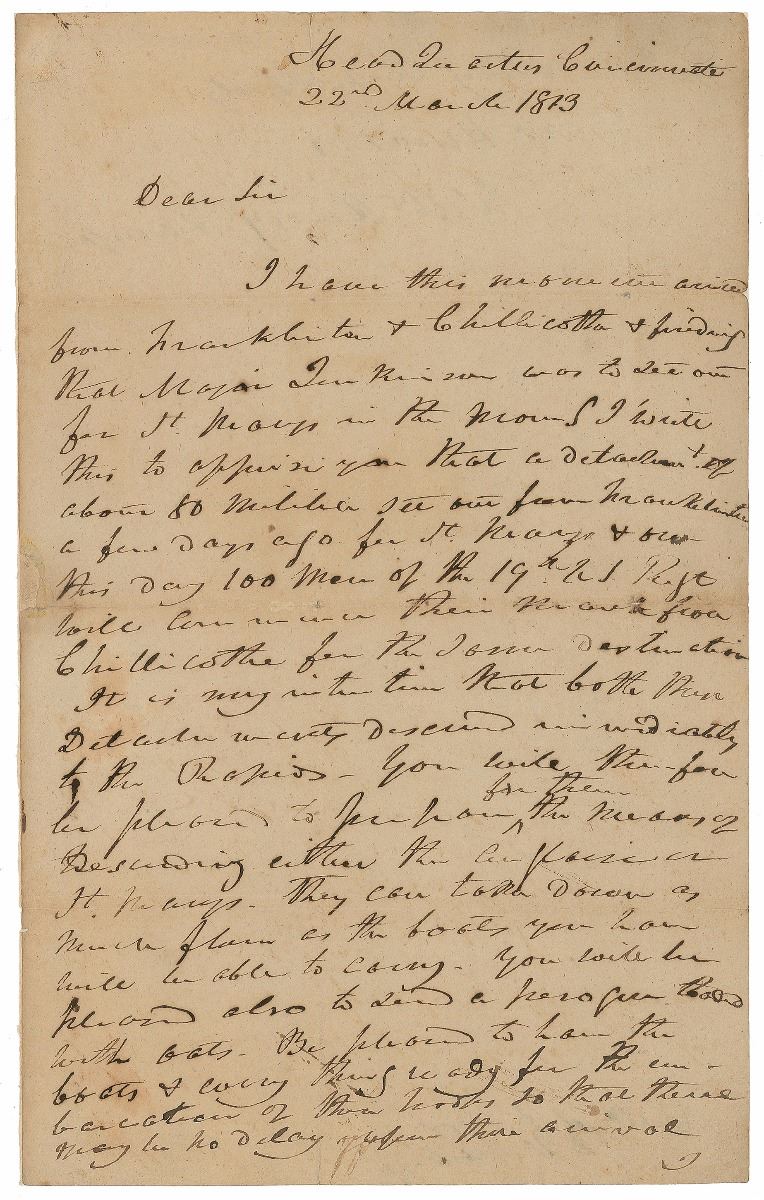 Head Quarters Cincinnati
22nd March 1813
Dear Sir
I have this moment arrived
from Franklinton & Chillicotha & finding
that Major Jenkinson was to set out
for St. Marys in the morng I write
this to apprise you that a detachmt. of
about 80 Militia set out from Franklinton
a few days ago for St. Marys & on
this day 100 Men of the 19th U S Regt
will commence their march from
Chillicothe for the same destination
It is my intention that both these
Detachments descend immediately
to the Rapids - You will therefore
be pleased to prepare for them the means of
Descending either the au Glaise or
St. Marys - they can take down as
much flour as the boats you have
will be able to carry - You will be
pleased also to send a perogue load
with oats - Be pleased to have the
boats & every thing ready for the em-
barcation of these troops so that there
may be no delay after their arrival